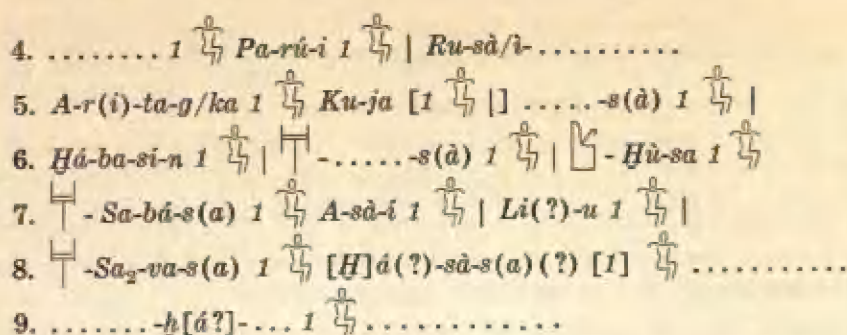 4. ........ 1 Pa-rú-i 1 | Ru-sà/ì-..........
5. A-r(i)-ta-g/ka 1 Ku-ja [1 |] .....-s(à) 1 |
6. Ḫá-ba-sí-n 1 | -.....-s(à) 1 | - Ḫù-sa 1
7. - Sa-bá-s(a) 1 A-sà-í 1 | Li(?)-u 1 |
8. -Sa₂-va-s(a) 1 [Ḫ]á(?)-sà-s(a)(?) [1] ............
9. ........-h[á?]-... 1 .............